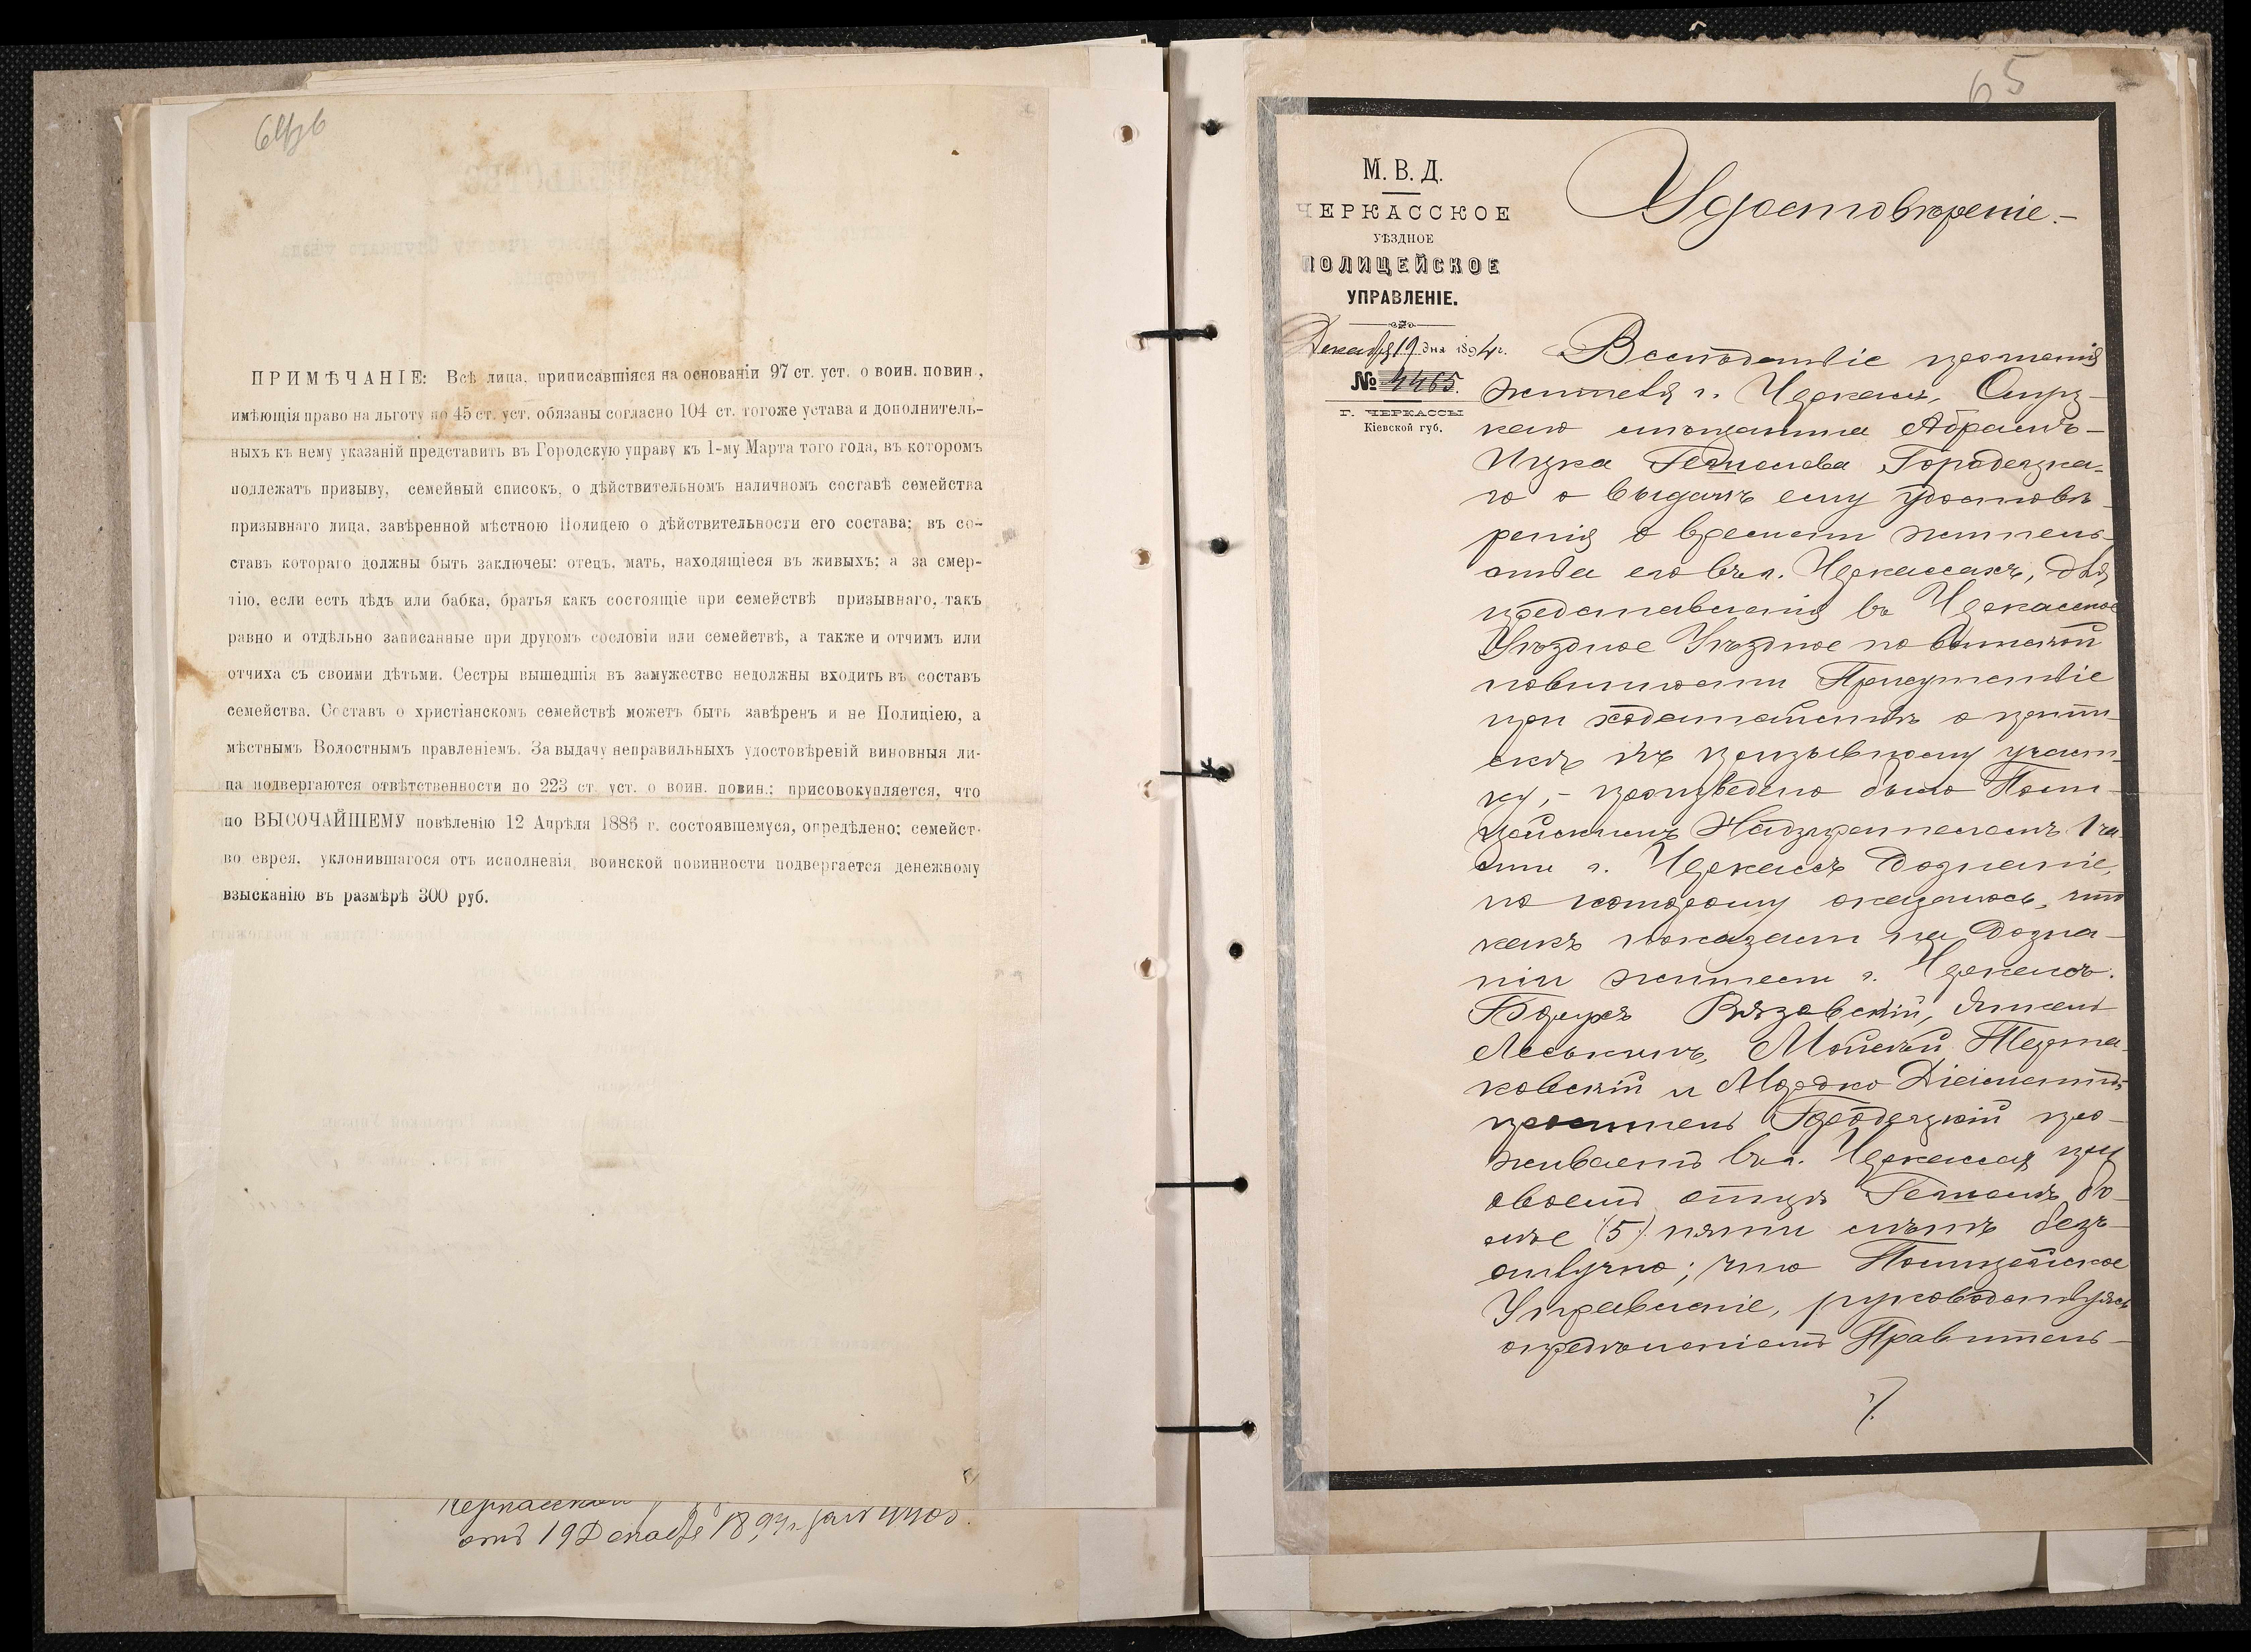 64зв
ПРИМѢЧАНІЕ: Всѣ лица, приписавшіяся на основаніи 97 ст. уст. о воин. повин.,
имѣющія право на льготу по 45 ст. уст. обязаны согласно 104 ст. тогоже устава и дополнитель-
ныхъ къ нему указаній представить въ Городскую управу къ 1-му Марта того года, въ которомъ
подлежатъ призыву, семейный списокъ, о дѣйствительномъ наличномъ составѣ семейства
призывнаго лица, завѣренной мѣстною Полицею о дѣйствительности его состава; въ со-
ставъ котораго должны быть заключены: отецъ, мать, находящіеся въ живыхъ; а за смер-
тію, если есть дѣдъ или бабка, братья какъ состоящіе при семействѣ призывнаго, такъ
равно и отдѣльно записанные при другомъ сословіи или семействѣ, а также и отчимъ или
отчиха съ своими дѣтьми. Сестры вышедшія въ замужество недолжны входить въ составъ
семейства. Составъ о христіанскомъ семействѣ можетъ быть завѣренъ и не Полиціею, а
мѣстнымъ Волостнымъ правленіемъ. За выдачу неправильныхъ удостовѣреній виновныя ли-
ца подвергаются отвѣтственности по 223 ст. уст. о воин. повин.; присовокупляется, что
по ВЫСОЧАЙШЕМУ повѣленію 12 Апрѣля 1886 г. состоявшемуся, опредѣлено: семейст-
во еврея, уклонившагося отъ исполненія воинской повинности подвергается денежному
взысканію въ размѣрѣ 300 руб.
отъ 19 Декабря 1894 г. за № 4465.
65
М. В. Д.
ЧЕРКАССКОЕ
УѢЗДНОЕ
ПОЛИЦЕЙСКОЕ
УПРАВЛЕНІЕ.
Декабря 19 дня 1894 г.
№ 4465.
Г. ЧЕРКАССЫ
Кіевской губ.
Удостовѣреніе.-
Вслѣдствіе прошенія
жителя г. Черкассъ,
мѣщанина Абрамъ-
Ицка Городецка-
го о выдачѣ ему удостовѣ-
ренія о времени житель-
ства его въ г. Черкассахъ, для
представленія въ Черкасское
Уѣздное Уѣздное по воинской
повинности Присутствіе
при ходатайствѣ о припи-
скѣ къ призывному участ-
ку,- произведено было Поли-
цейскимъ Надзирателемъ 1 ча-
сти г. Черкассъ дознаніе,
по которому оказалось, что
какъ показали на дозна-
ніи жители г. Черкассъ.
Леськинъ, Мойсей
ковскій и Мордко
проситель Городецкій про-
живаетъ въ г. Черкассахъ при
своемъ отцѣ бо-
лѣе (5) пяти лѣтъ безъ-
отлучно; что Полицейское
Управленіе, руководствуясь
опредѣленіемъ Правитель-